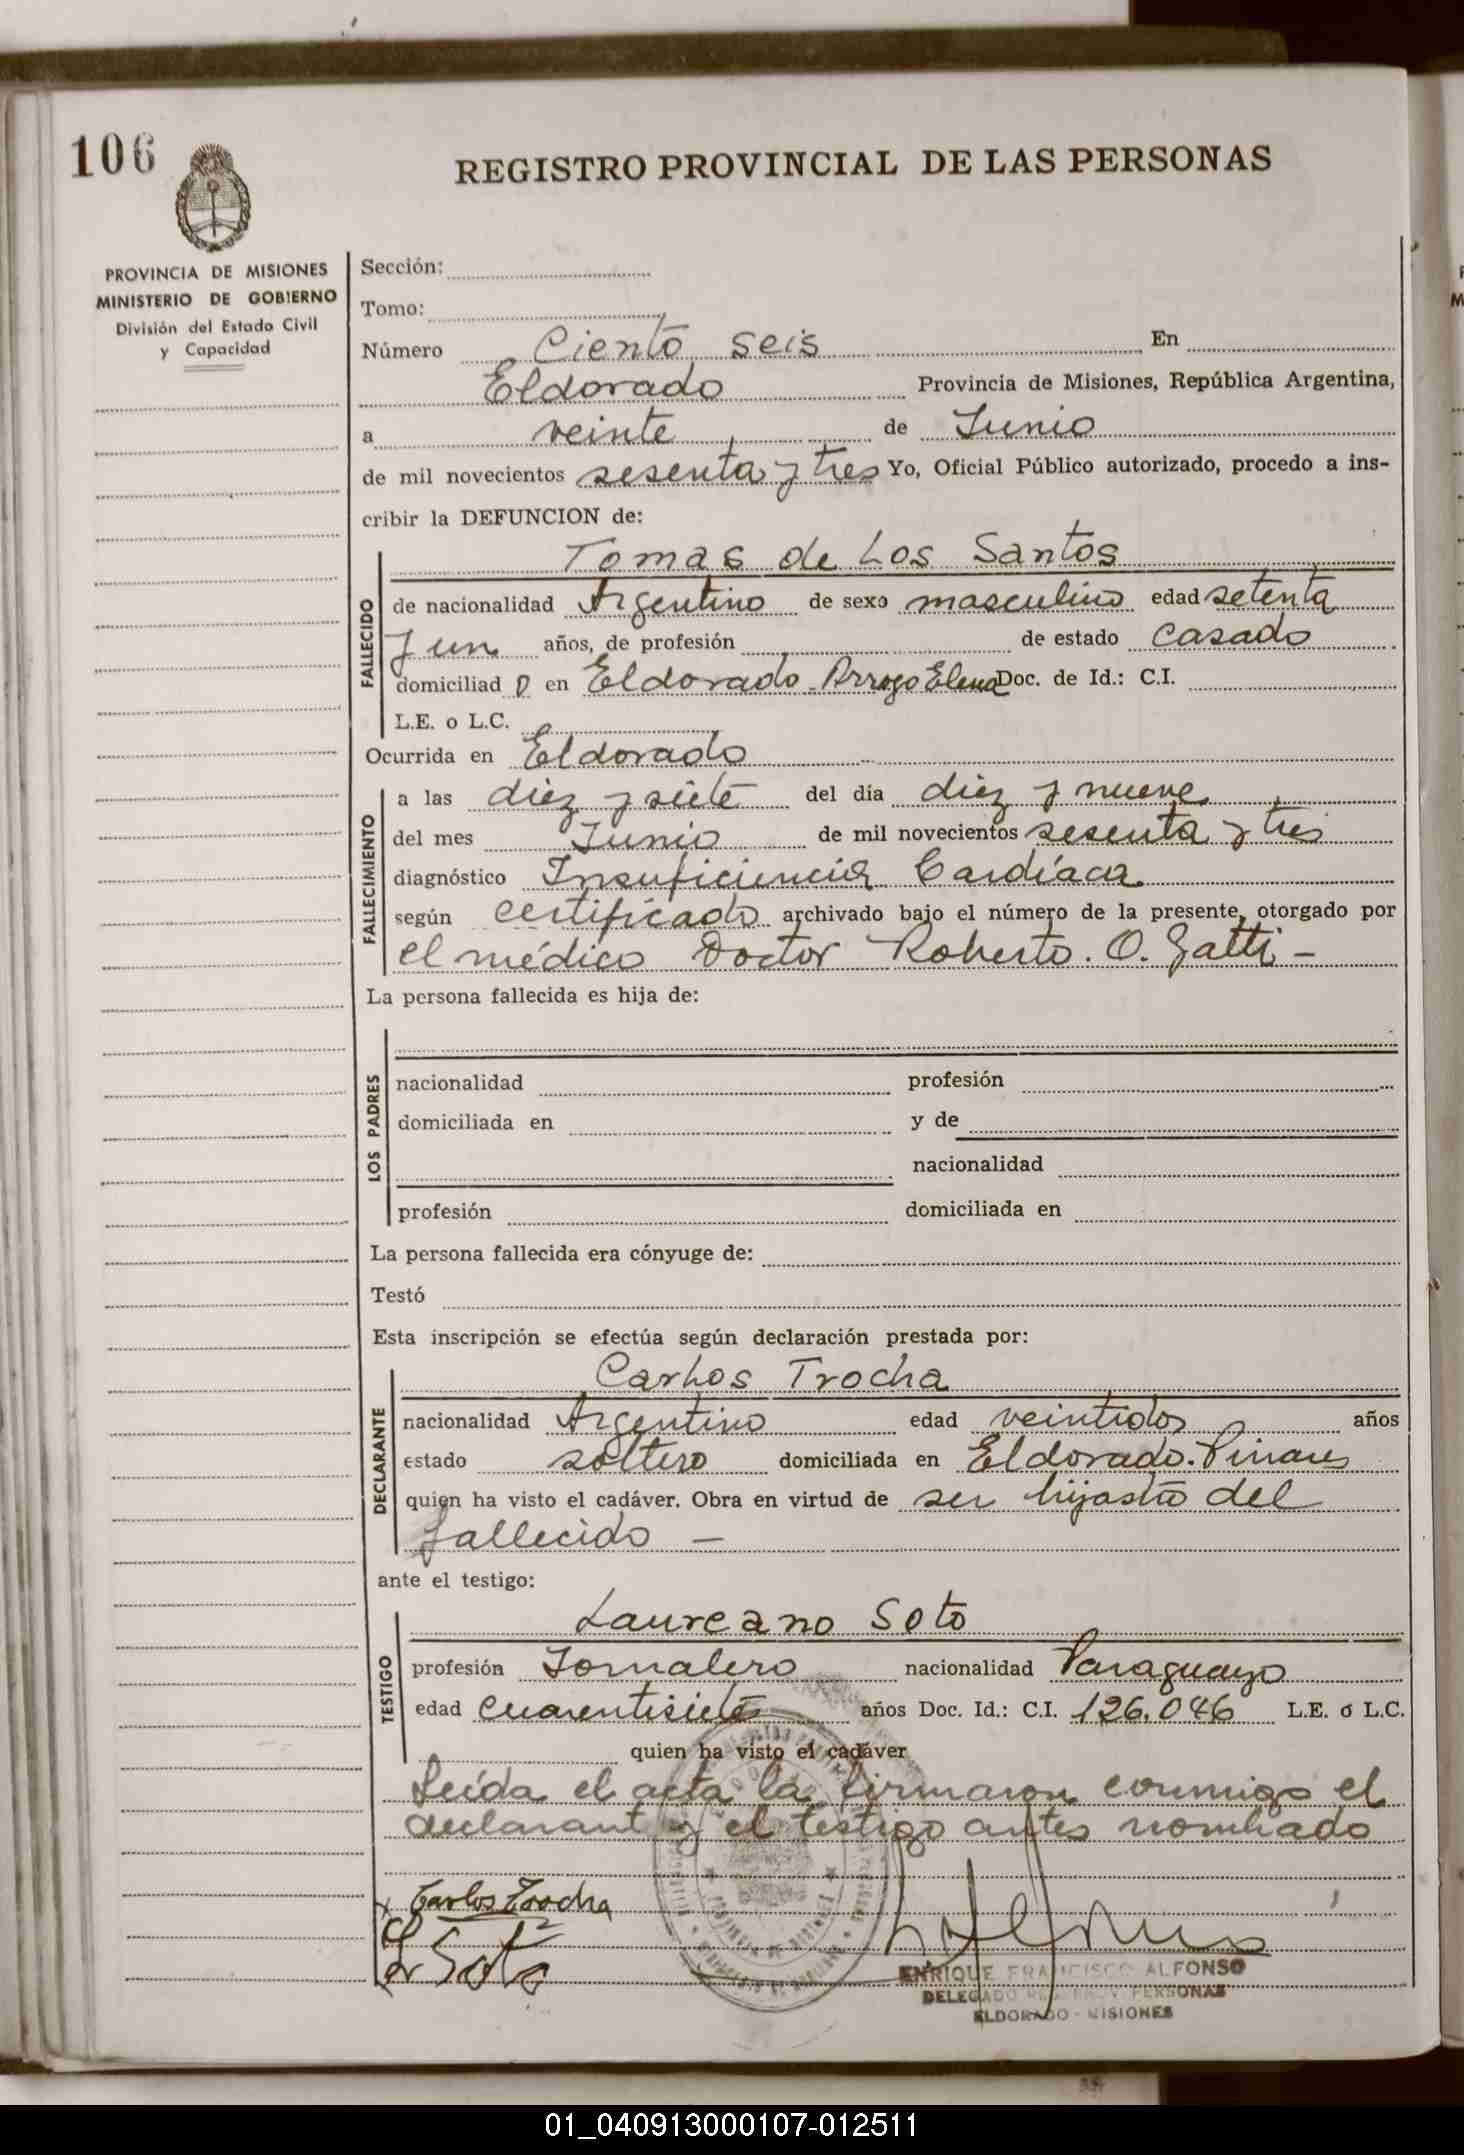 106
REGISTRO PROVINCIAL DE LAS PERSONAS
PROVINCIA DE MISIONES
MINISTERIO DE GOBIERNO
División del Estado Civil
y Capacidad
Sección:
Tomo:
Número Ciento seis En
Eldorado Provincia de Misiones, República Argentina,
a veinte de Junio
de mil novecientos sesenta y tres Yo, Oficial Público autorizado, procedo a ins-
cribir la DEFUNCION de:
FALLECIDO
Tomas de Los Santos
de nacionalidad Argentino de sexo masculino edad setenta
y un años, de profesión de estado casado
domiciliad o en Eldorado - Arroyo Elena Doc. de Id.: C.I.
L.E. o L.C.
Ocurrida en Eldorado
FALLECIMIENTO
a las diez y siete del día diez y nueve
del mes Junio de mil novecientos sesenta y tres
diagnóstico Insuficiencia Cardíaca
según certificado archivado bajo el número de la presente, otorgado por
el médico Doctor Roberto. O. Gatti -
La persona fallecida es hija de:
LOS PADRES
nacionalidad profesión
domiciliada en y de
nacionalidad
profesión domiciliada en
La persona fallecida era cónyuge de:
Testó
Esta inscripción se efectúa según declaración prestada por:
DECLARANTE
Carlos Trocha
nacionalidad Argentino edad veintidos años
estado soltero domiciliada en Eldorado. Pinares
quien ha visto el cadáver. Obra en virtud de ser hijastro del
fallecido -
ante el testigo:
TESTIGO
Laureano Soto
profesión Jornalero nacionalidad Paraguayo
edad cuarentisiete años Doc. Id.: C.I. 126.046 L.E. ó L.C.
quien ha visto el cadáver
Leída el acta la firmaron conmigo el
declarant y el testigo antes nombrado
x Carlos Trocha
Soto
ENRIQUE FRANCISCO ALFONSO
DELEGADO REG. PROV. PERSONAS
ELDORADO - MISIONES
01_040913000107-012511